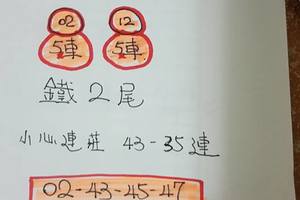 02 12
5車 5車
鐵2尾
小心連莊 43-35連
02-43-45-47